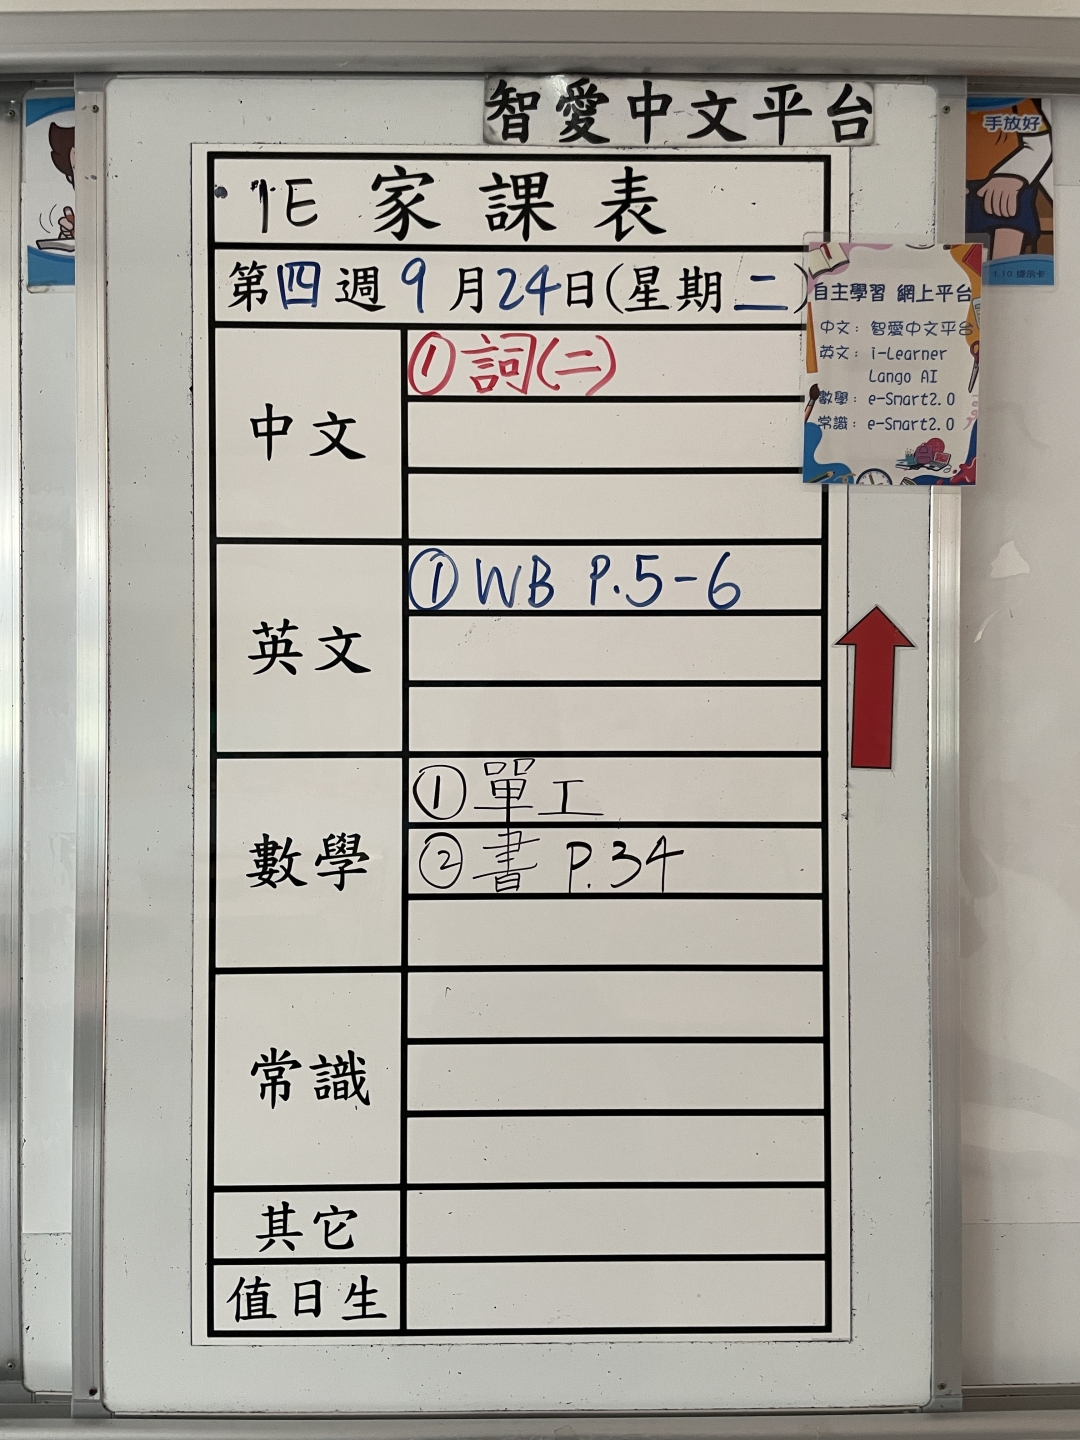 智愛中文平台
1E 家課表
第四週9月24日(星期二)
中文
①詞(二)
英文
①WB P.5-6
數學
①單工
②書 P.34
常識
其它
值日生
自主學習 網上平台
中文：智愛中文平台
英文：i-Learner
Lango AI
數學：e-Smart2.0
常識：e-Smart2.0
手放好
1.10 提示卡